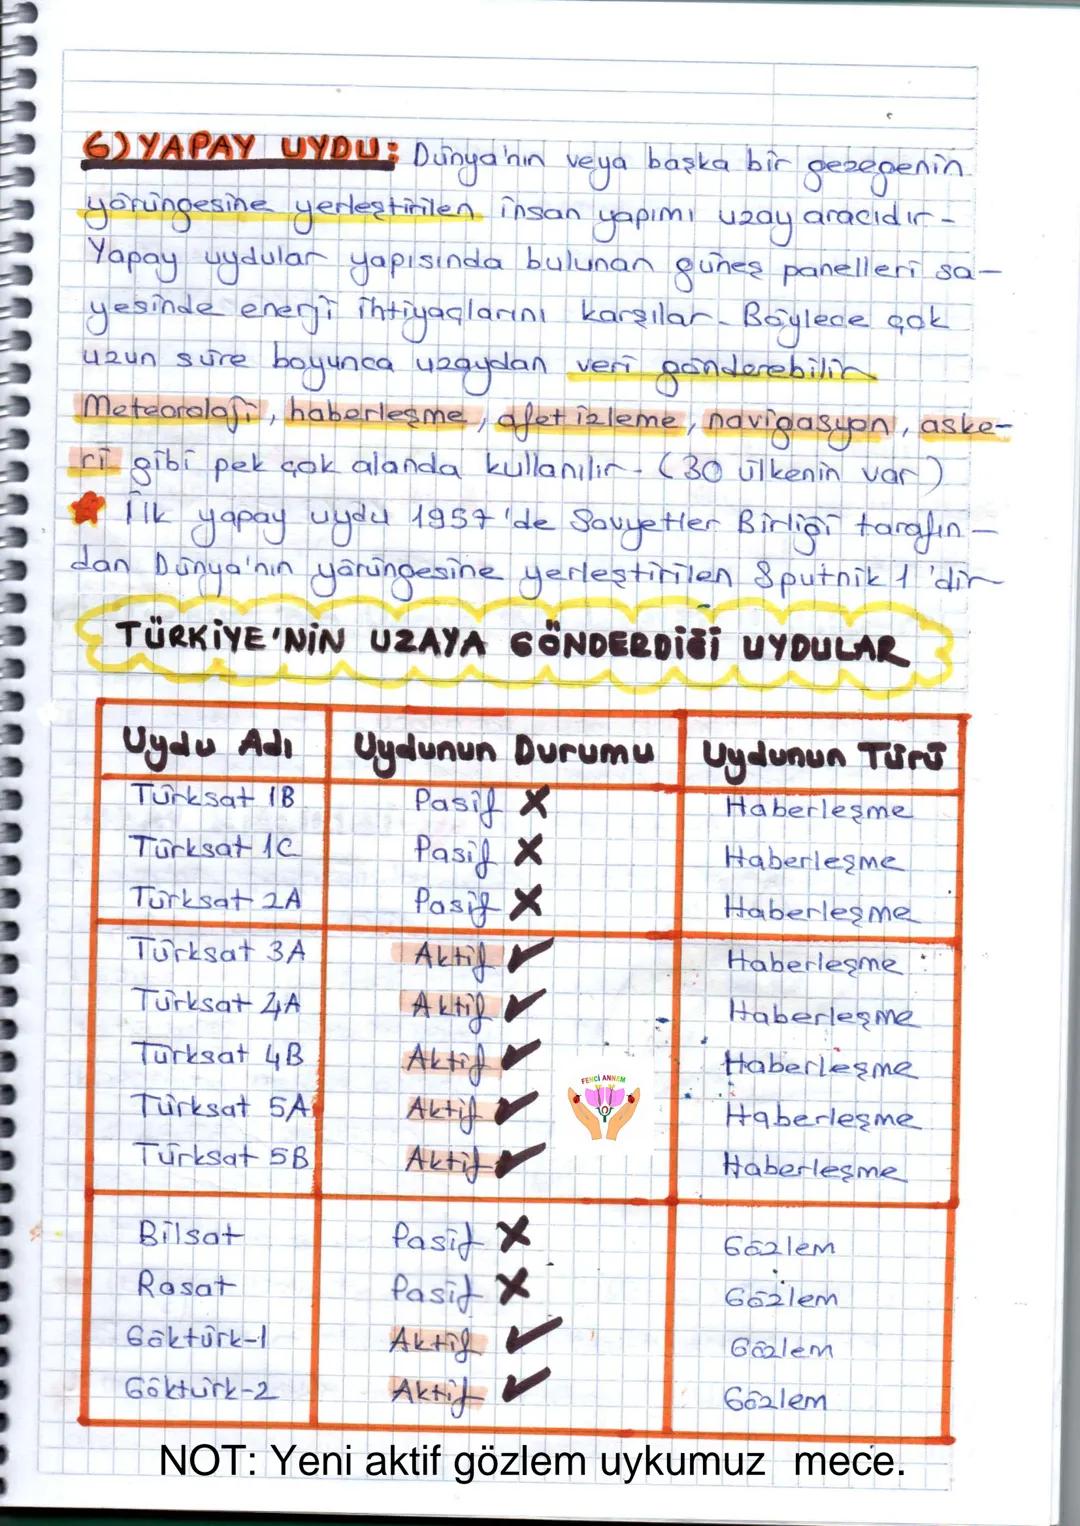 6) YAPAY UYDU: Dünya'nın veya başka bir gezegenin
yörüngesine yerleştirilen insan yapımı uzay aracıdır.
Yapay uydular yapısında bulunan güneş panelleri sa-
yesinde enerji ihtiyaçlarını karşılar. Böylece çok
uzun süre boyunca uzaydan veri gönderebilir.
Meteoroloji, haberleşme, afet izleme, navigasyon, aske-
ri gibi pek çok alanda kullanılır. (30 ülkenin var)
İlk yapay uydu 1957'de Sovyetler Birliği tarafın-
dan Dünya'nın yörüngesine yerleştirilen Sputnik 1'dir
TÜRKİYE'NİN UZAYA GÖNDERDİĞİ UYDULAR
Uydu Adı Uydunun Durumu Uydunun Türü
Türksat 1B Pasif X Haberleşme
Türksat 1C Pasif X Haberleşme
Türksat 2A Pasif X Haberleşme
Türksat 3A Aktif ✓ Haberleşme
Türksat 4A Aktif ✓ Haberleşme
Türksat 4B Aktif ✓ Haberleşme
FENCİ ANNEM
Türksat 5A Aktif ✓ Haberleşme
Türksat 5B Aktif ✓ Haberleşme
Bilsat Pasif X Gözlem
Rasat Pasif X Gözlem
Göktürk-1 Aktif ✓ Gözlem
Göktürk-2 Aktif ✓ Gözlem
NOT: Yeni aktif gözlem uykumuz mece.